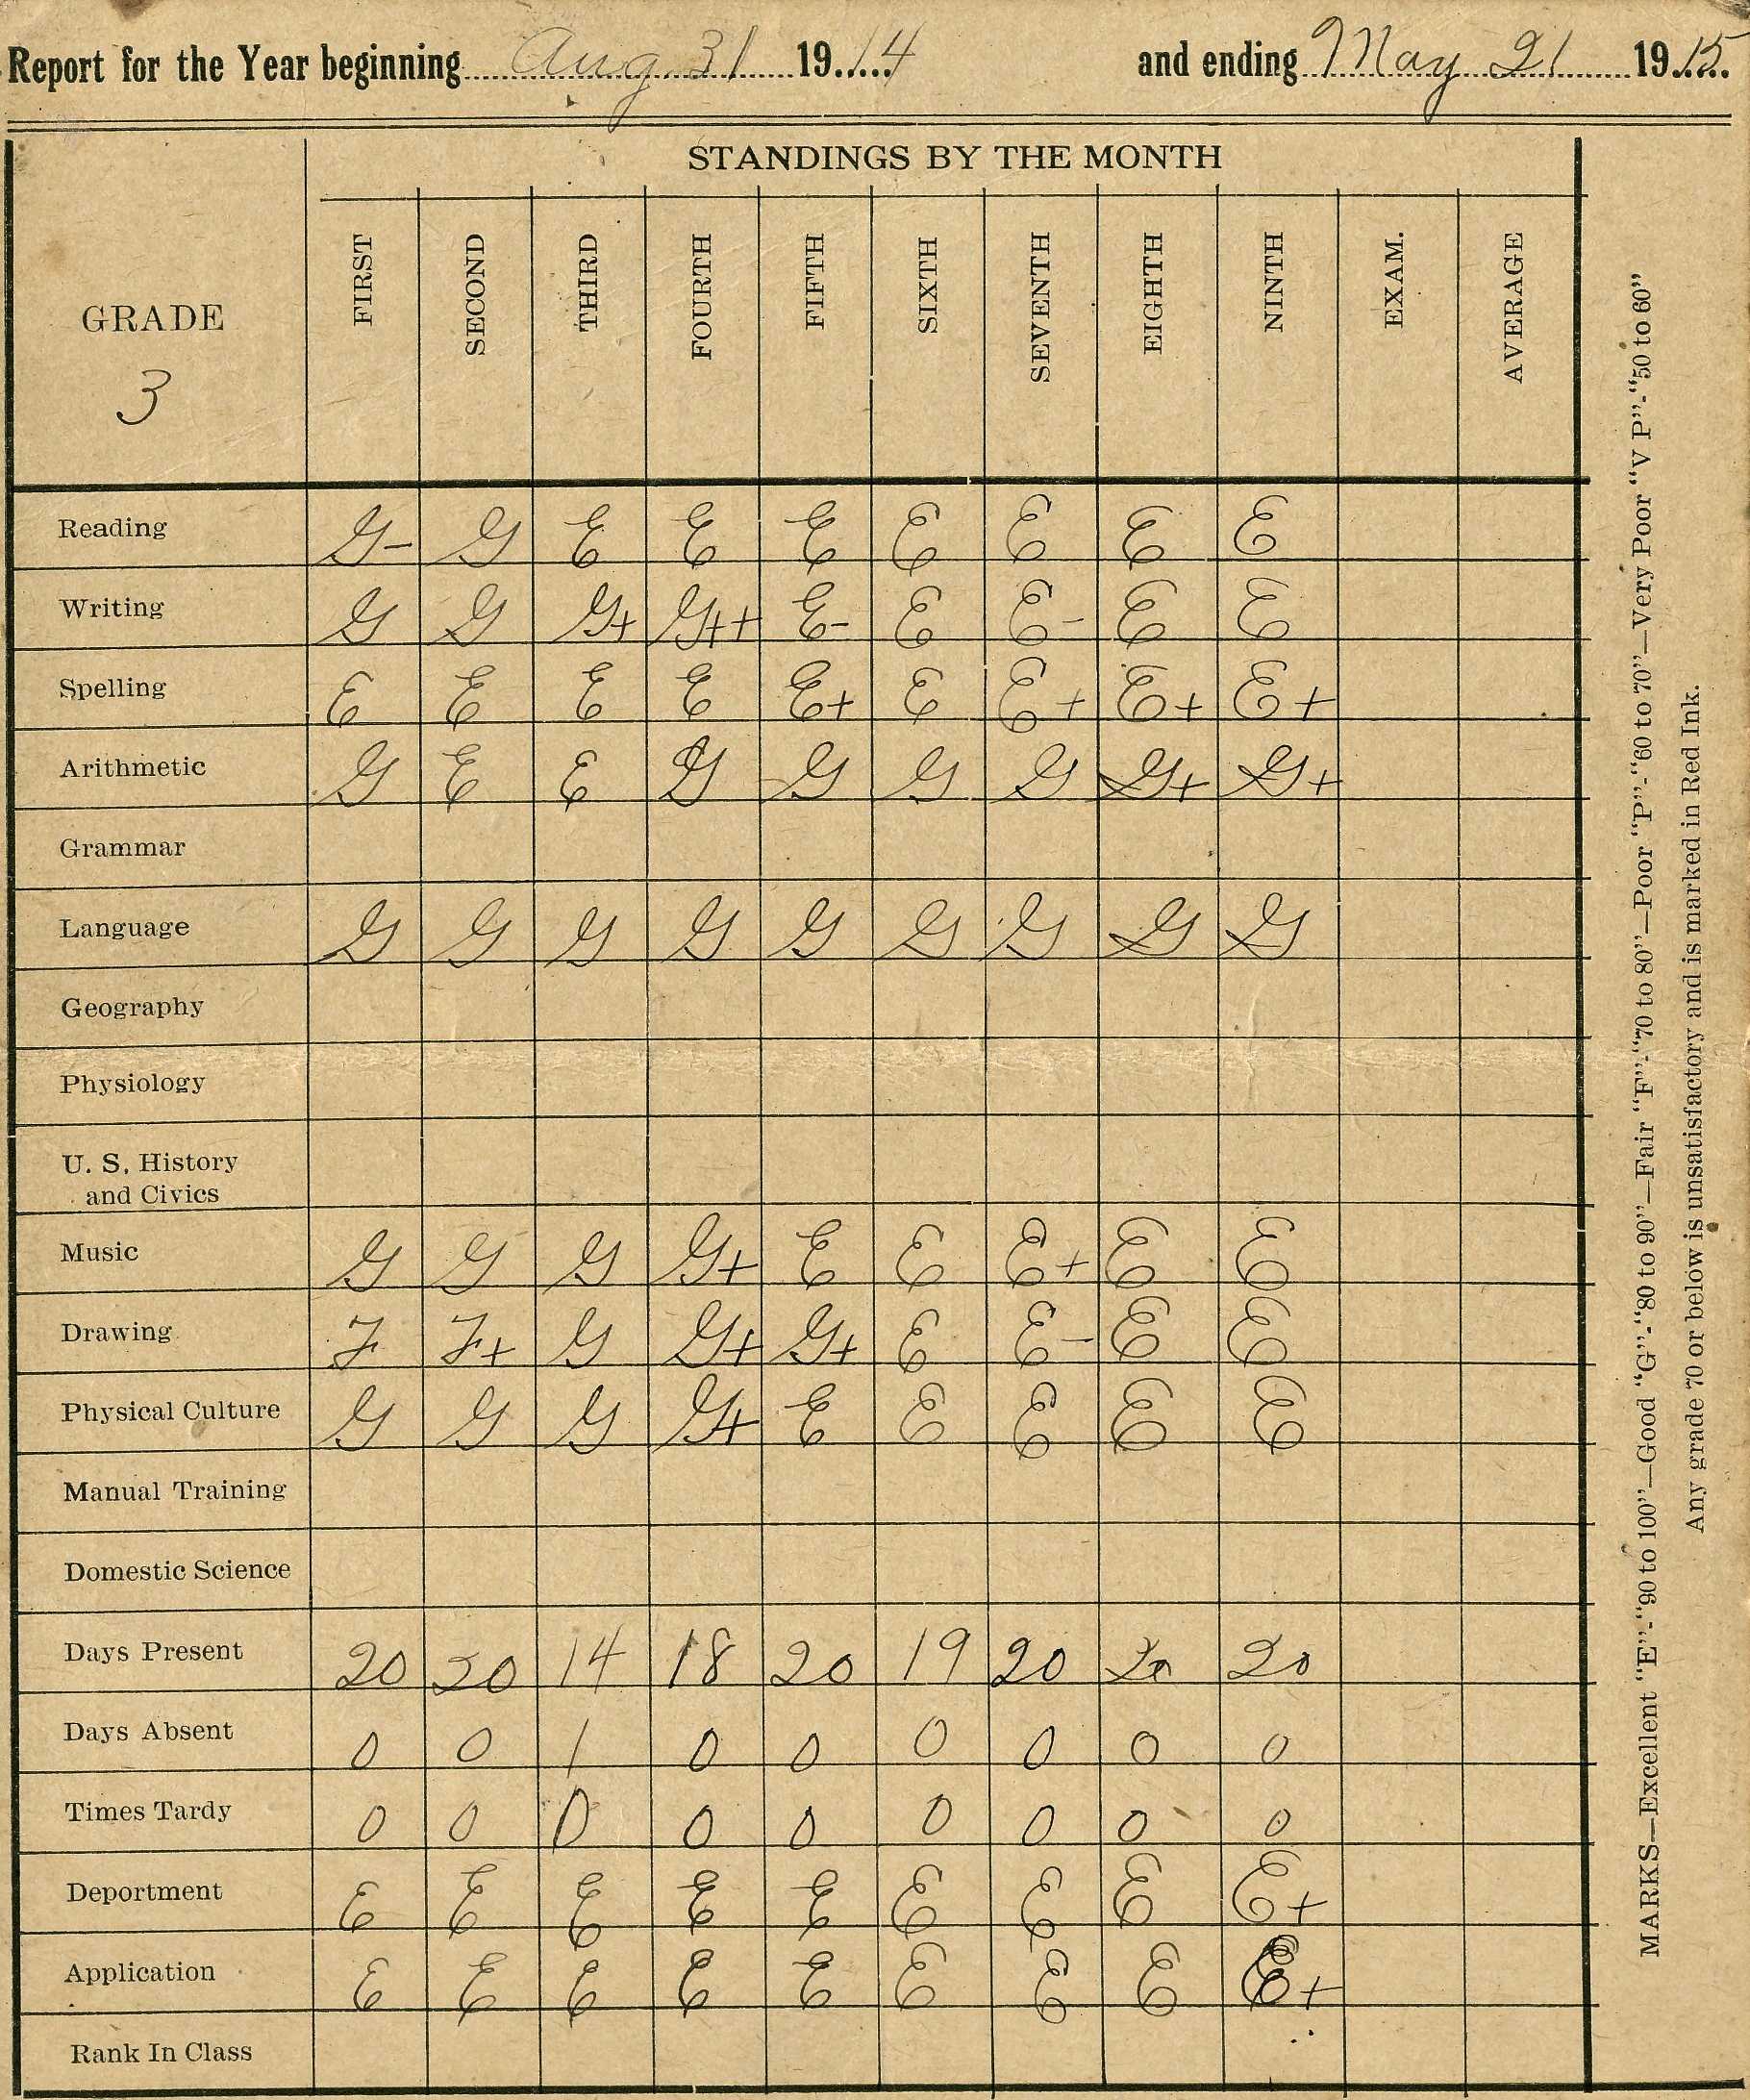 Report for the Year beginning Aug. 31 1914 and ending May 21 1915.
STANDINGS BY THE MONTH
GRADE 3 FIRST SECOND THIRD FOURTH FIFTH SIXTH SEVENTH EIGHTH NINTH EXAM. AVERAGE
Reading G- G E E E E E E E
Writing G G G+ G++ E- E E- E E
Spelling E E E E E+ E E+ E+ E+
Arithmetic G E E G G G G G+ G+
Grammar
Language G G G G G G G G G
Geography
Physiology
U. S. History
and Civics
Music G G G G+ E E E+ E E
Drawing F F+ G G+ G+ E E- E E
Physical Culture G G G G+ E E E E E
Manual Training
Domestic Science
Days Present 20 20 14 18 20 19 20 20 20
Days Absent 0 0 1 0 0 0 0 0 0
Times Tardy 0 0 0 0 0 0 0 0 0
Deportment E E E E E E E E E+
Application E E E E E E E E E+
Rank In Class
MARKS—Excellent "E"-"90 to 100"—Good "G"-"80 to 90"—Fair "F"-"70 to 80"—Poor "P"-"60 to 70"—Very Poor "V P"-"50 to 60"
Any grade 70 or below is unsatisfactory and is marked in Red Ink.